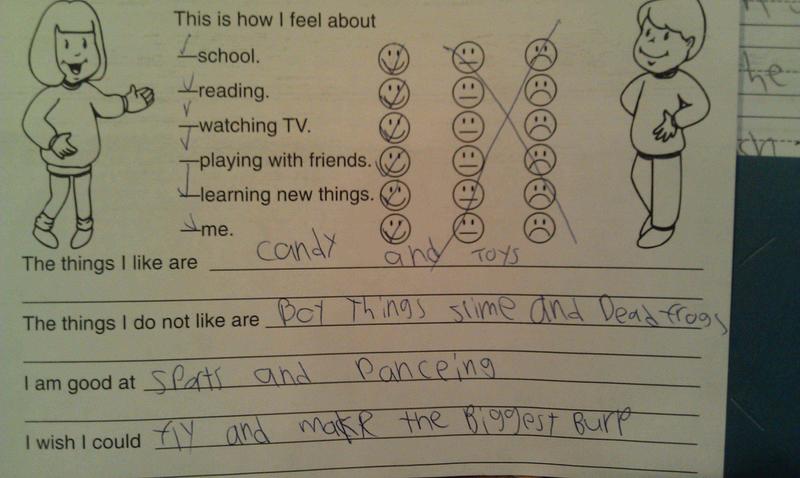 This is how I feel about
school.
reading.
watching TV.
playing with friends.
learning new things.
me.
The things I like are candy and Toys
The things I do not like are Boy Things slime and Dead frogs
I am good at sports and Danceing
I wish I could fly and make the Biggest Burp
he